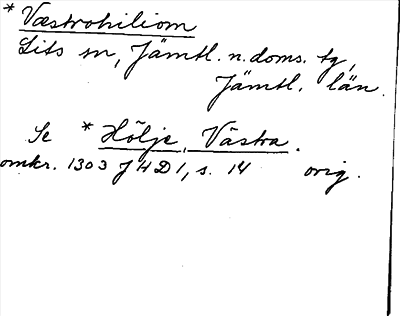 * Væstrohiliom
Lits sn, Jämtl. n. doms. tg,
Jämtl. län.
Se * Hölje, Västra.
omkr. 1303 J H D 1, s. 14 orig.